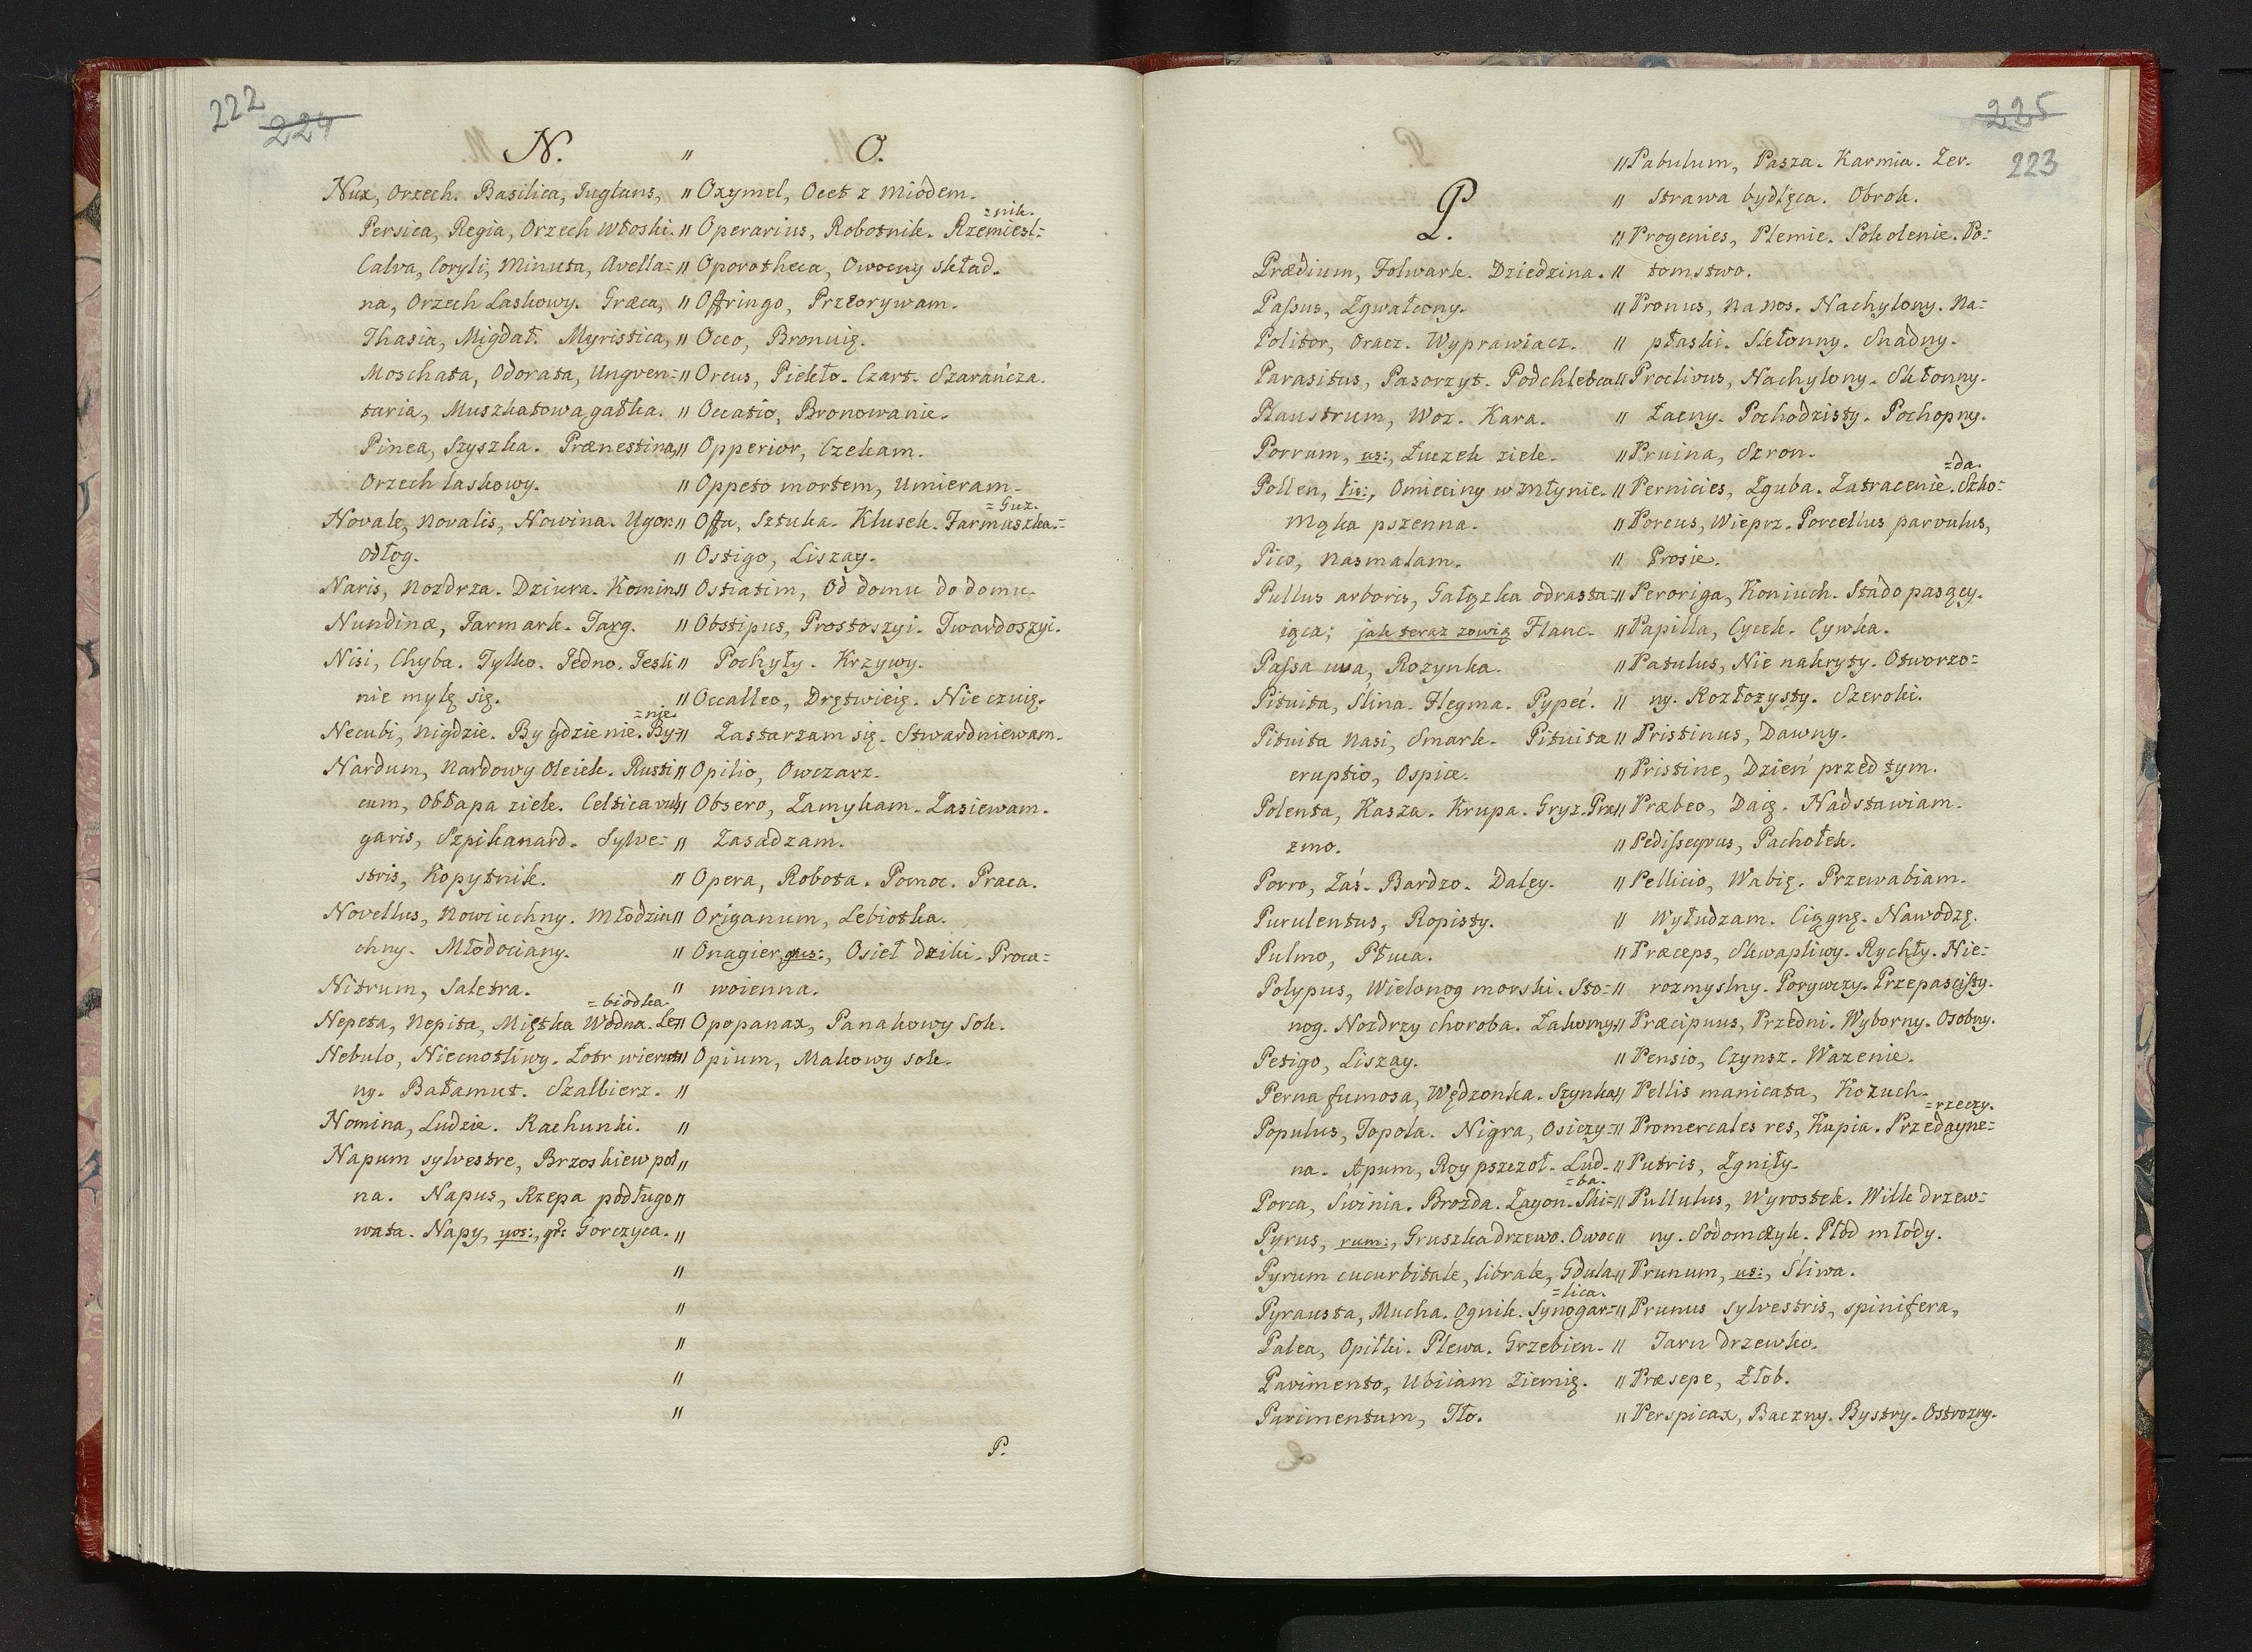 222
224
N. " O.
Nux, Orzech. Basilica, Iuglans,
Persica, Regia, Orzech Włoski.
Calva, Coryli, Minuta, Avella=
na, Orzech Laskowy. Græca,
Thasia, Migdał. Myristica,
Moschata, Odorata, Ungven=
taria, Muszkatowa gałka.
Pinea, Szyszka. Prænestina,
Orzech laskowy.
Novale, Novalis, Nowina. Ugor.
Odłog.
Naris, Nozdrza. Dziura. Komin.
Nundinæ, Jarmark. Targ.
Nisi, Chyba. Tylko. Jedno. Jesli
nie mylę się.
=nie.
Necubi, Nigdzie. By gdzie nie. By=
Nardum, Nardowy Oleiek. Rusti
cum, Obłapa ziele. Celtica vul
garis, Szpikanard. Sylve=
stris, Kopytnik.
Novellus, Nowiuchny. Młodziu
chny. Młodociany.
Nitrum, Saletra.
=biodka.
Nepeta, Nepita, Miętka Wodna. Le=
Nebulo, Niecnotliwy. Łotr wierut
ny. Bałamut. Szalbierz.
Nomina, Ludzie. Rachunki.
Napum sylvestre, Brzoskiew pol
na. Napus, Rzepa podługo
wata. Napy, yos:, gr: Gorczyca.
Oxymel, Ocet z miodem.
=nik.
Operarius, Robotnik. Rzemiesl=
Oporotheca, Owocny skład.
Offringo, Przeorywam.
Occo, Bronuię.
Orcus, Piekło. Czart. Szarańcza.
Occatio, Bronowanie.
Opperior, Czekam.
Oppeto mortem, Umieram.
=Guz.
Offa, Sztuka. Klusek. Jarmuszka.=
Ostigo, Liszay.
Ostiatim, Od domu do domu.
Obstipus, Prostoszyi. Twardoszyi.
Pochyły. Krzywy.
Occalleo, Drętwieię. Nie czuię.
Zastarzam się. Stwardniewam.
Opilio, Owczarz.
Obsero, Zamykam. Zasiewam.
Zasadzam.
Opera, Robota. Pomoc. Praca.
Origanum, Lebiotka.
Onagier, grus:, Osieł dziki. Proca=
woienna.
Opopanax, Panakowy Sok.
Opium, Makowy sok.
P.
225
223
P.
Prædium, Folwark. Dziedzina.
Passus, Zgwałcony.
Politor, Oracz. Wyprawiacz.
Parasitus, Pasorzyt. Podchlebca
Plaustrum, Woz. Kara.
Porrum, us:, Łuczek ziele.
Pollen, lis:, Omieciny w Młynie.
Mąka pszenna.
Pico, Nasmalam.
Pullus arboris, Gałązka odrasta=
iąca; jak teraz zowią Flanc.
Passa uva, Rozynka.
Pituita, Ślina. Flegma. Pypeć.
Pituita Nasi, Smark. Pituitæ
eruptio, Ospice.
Polenta, Kasza. Krupa. Gryz. Pra
zmo.
Porro, Zaś. Bardzo. Daley.
Purulentus, Ropisty.
Pulmo, Płuca.
Polypus, Wielonog morski. Sto=
nog. Nozdrzy choroba. Łakomy.
Petigo, Liszay.
Perna fumosa, Wędzonka. Szynka
Populus, Topola. Nigra, Osiczy=
na. Apum, Roy pszczoł. Lud.
=ba.
Porca, Świnia. Brozda. Zagon. Ski=
Pyrus, rum:, Gruszka drzewo. Owoc
Pyrum cucurbitale, librale, Gdula
=lica.
Pyrausta, Mucha. Ognik. Synogar=
Palea, Opiłki. Plewa. Grzebien.
Pavimento, Ubiiam Ziemię.
Pavimentum, Tło.
Pabulum, Pasza. Karmia. Zer.
Strawa bydlęca. Obrok.
Progenies, Plemie. Pokolenie. Po=
tomstwo.
Pronus, Na Nos. Nachylony. Na=
płaski. Skłonny. Snadny.
Proclivus, Nachylony. Skłonny.
Łacny. Pochodzisty. Pochopny.
Pruina, Szron.
=da.
Pernicies, Zguba. Zatracenie. Szko=
Porcus, Wieprz. Porcellus parvulus,
Prosie.
Peroriga, Koniuch. Stado pasący.
Papilla, Cycek. Cywka.
Patulus, Nie nakryty. Otworzo=
ny. Rozłozysty. Szeroki.
Pristinus, Dawny.
Pristine, Dzień przed tym.
Præbeo, Daię. Nadstawiam.
Pedissequus, Pachołek.
Pellicio, Wabię. Przewabiam.
Wyłudzam. Ciągnę. Nawodzę.
Præceps, Skwapliwy. Rychły. Nie=
rozmyslny. Porywczy. Przepascisty.
Præcipuus, Przedni. Wyborny. Osobny.
Pensio, Czynsz. Wazenie.
Pellis manicata, Kozuch.
=rzeczy.
Promercales res, Kupia. Przedayne=
Putris, Zgniły.
Pullulus, Wyrostek. Wilk drzew=
ny. Sodomczyk. Płod młody.
Prunum, us:, Śliwa.
Prunus sylvestris, spinifera,
Tarn drzewko.
Præsepe, Żłob.
Perspicax, Baczny. Bystry. Ostrozny.